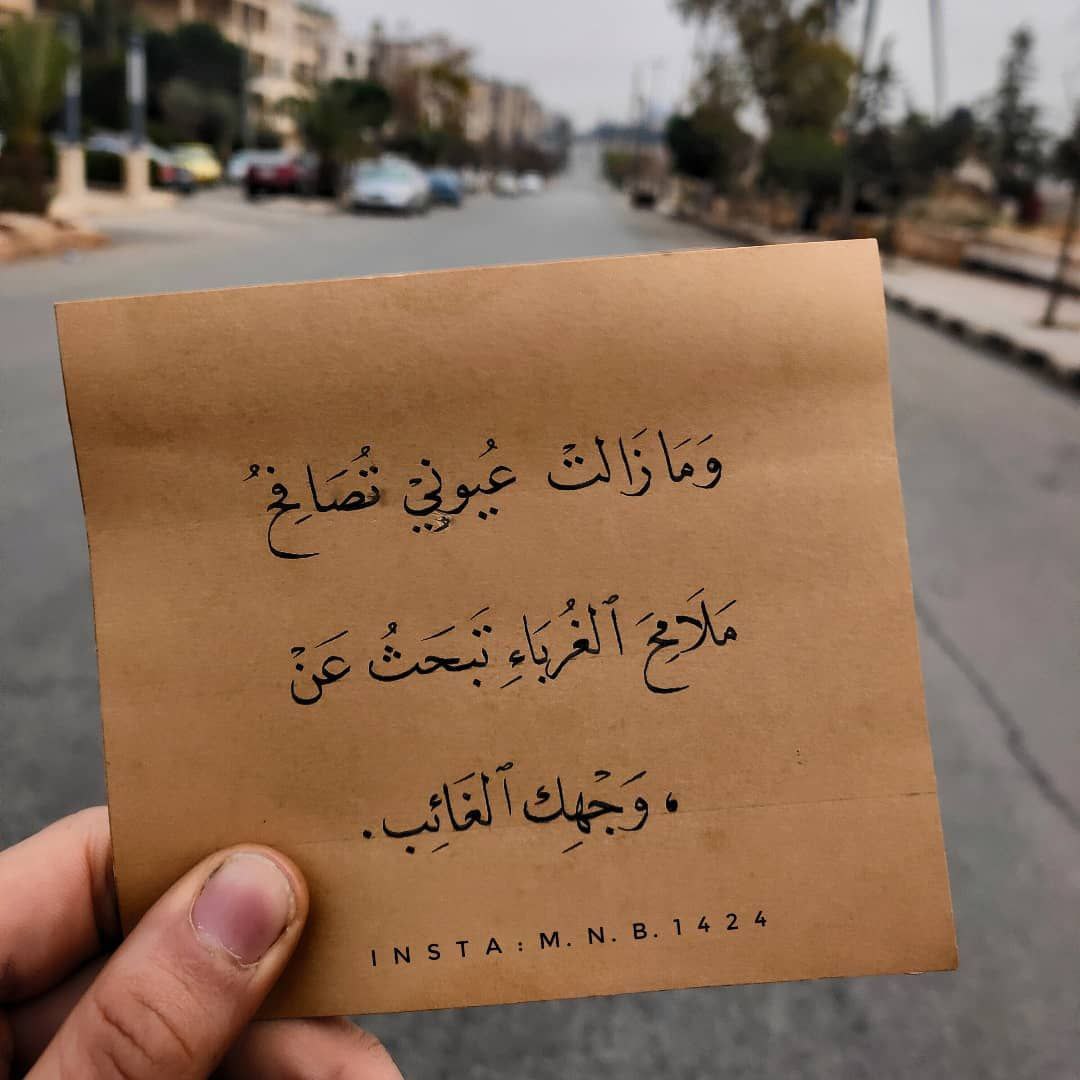 وَمَا زَالتْ عُيونيْ تُصَافِحُ
مَلَامِحَ ٱلغُربَاءِ تَبحَثُ عَنْ
، وَجْهِك ٱلغَائِب .
INSTA:M.N.B.1424